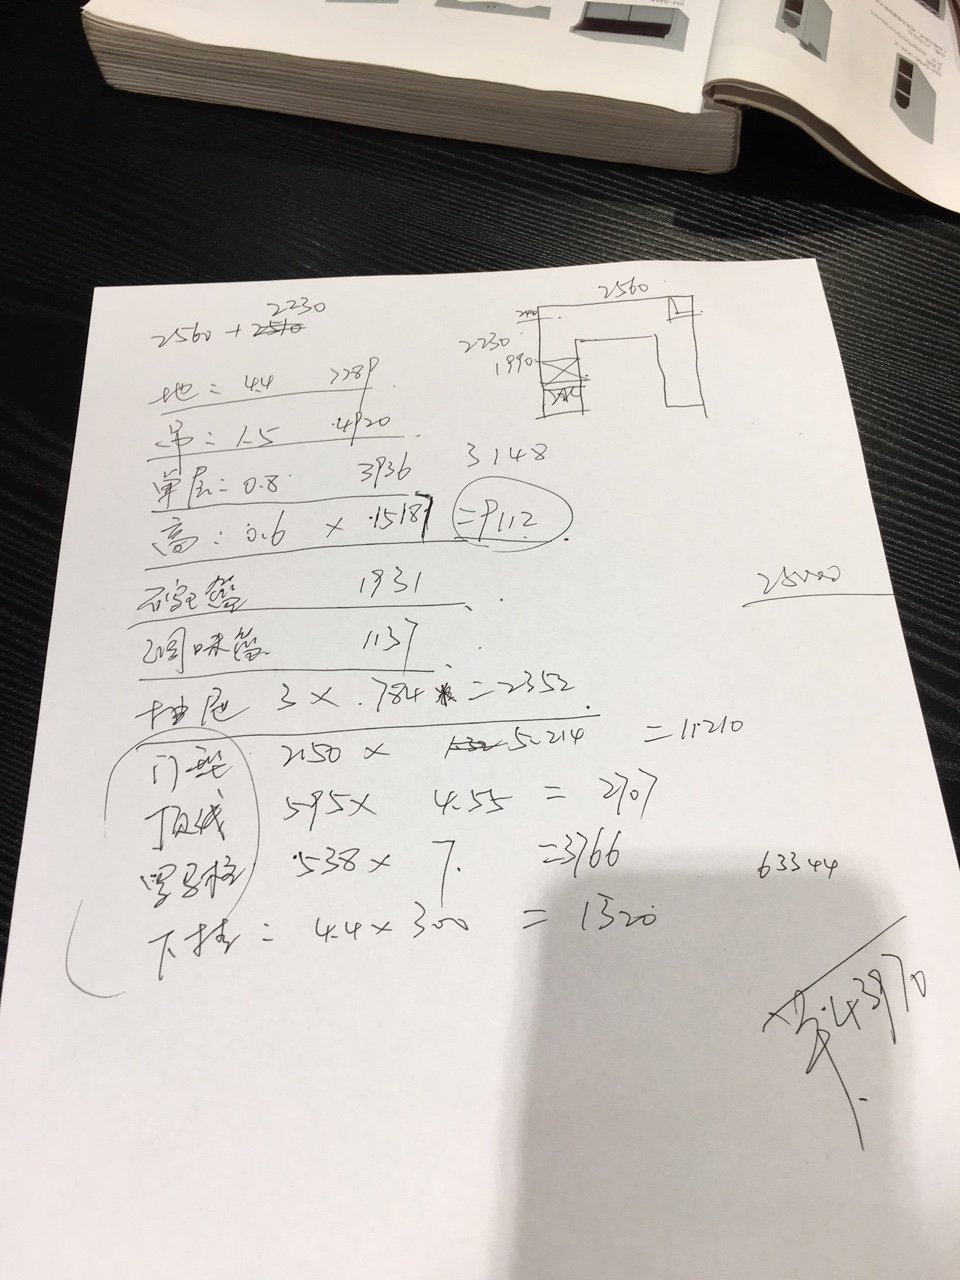 2230
2560 + 2510
2560
200
2230
1990
地：4.4 7289
吊：1.5 4920
单层：0.8 3936 3148
高：0.6 × 15187 =9112
1931
调味篮 1137
抽屉 3 × 784 =2352
25000
门型 2150 × 5.214 =11210
顶线 595× 4.55 = 2707
罗马柱 538× 7. =3766
63344
下挂：4.4×300 = 1320
43970